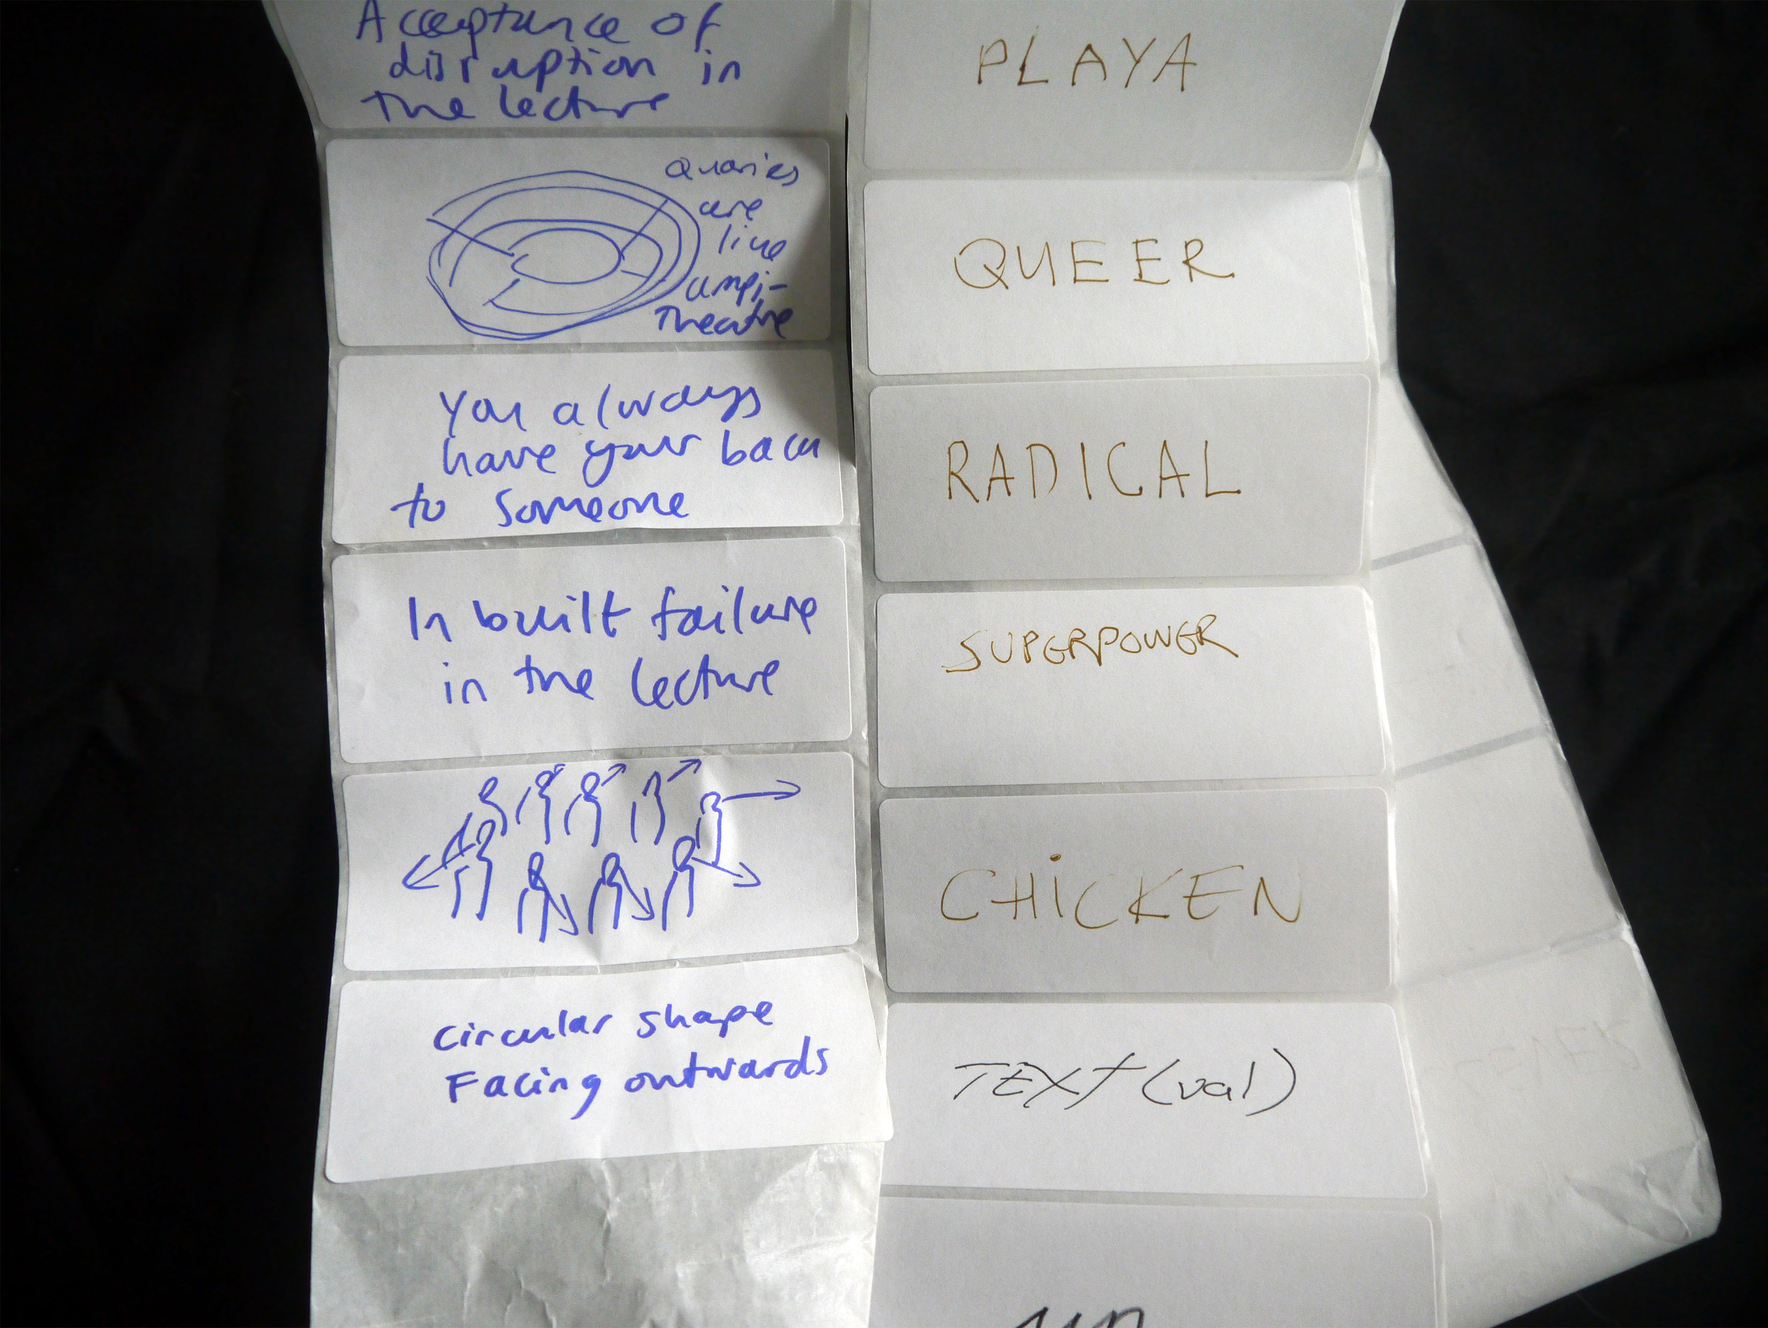 Acceptance of
disruption in
the lecture
Quaries
are
like
ampi-
theatre
You always
have your back
to someone
In built failure
in the lecture
Circular shape
Facing outwards
PLAYA
QUEER
RADICAL
SUPERPOWER
CHiCKEN
TEXT (val)